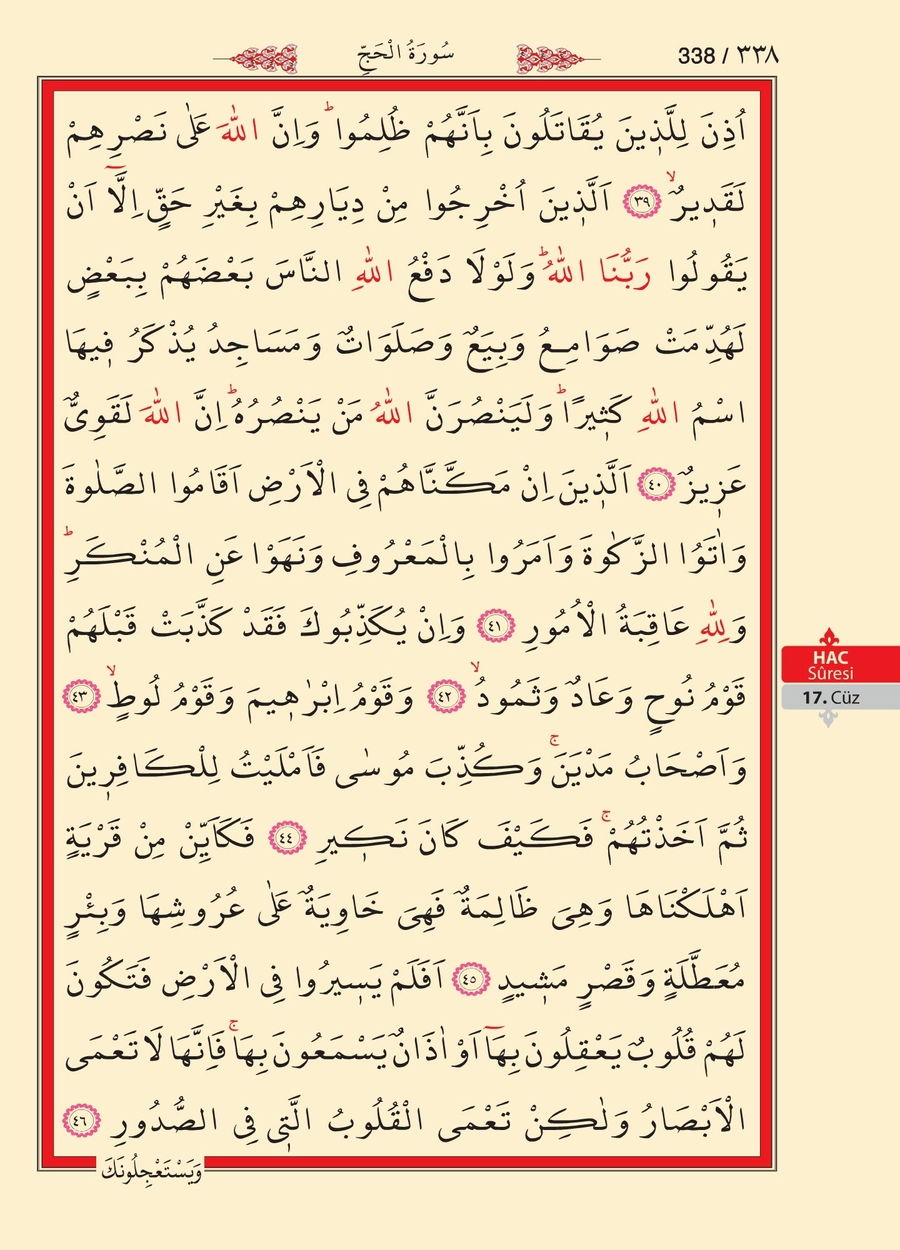 سُورَةُ الْحَجِّ
338 / ٣٣٨
اُذِنَ لِلَّذ۪ينَ يُقَاتَلُونَ بِاَنَّهُمْ ظُلِمُواۜ وَاِنَّ اللّٰهَ عَلٰى نَصْرِهِمْ
لَقَد۪يرٌۙ ﴿٣٩﴾ اَلَّذ۪ينَ اُخْرِجُوا مِنْ دِيَارِهِمْ بِغَيْرِ حَقٍّ اِلَّٓا اَنْ
يَقُولُوا رَبُّنَا اللّٰهُۜ وَلَوْلَا دَفْعُ اللّٰهِ النَّاسَ بَعْضَهُمْ بِبَعْضٍ
لَهُدِّمَتْ صَوَامِعُ وَبِيَعٌ وَصَلَوَاتٌ وَمَسَاجِدُ يُذْكَرُ ف۪يهَا
اسْمُ اللّٰهِ كَث۪يرًاۜ وَلَيَنْصُرَنَّ اللّٰهُ مَنْ يَنْصُرُهُۜ اِنَّ اللّٰهَ لَقَوِيٌّ
عَز۪يزٌ ﴿٤٠﴾ اَلَّذ۪ينَ اِنْ مَكَّنَّاهُمْ فِي الْاَرْضِ اَقَامُوا الصَّلٰوةَ
وَاٰتَوُا الزَّكٰوةَ وَاَمَرُوا بِالْمَعْرُوفِ وَنَهَوْا عَنِ الْمُنْكَرِۜ
وَلِلّٰهِ عَاقِبَةُ الْاُمُورِ ﴿٤١﴾ وَاِنْ يُكَذِّبُوكَ فَقَدْ كَذَّبَتْ قَبْلَهُمْ
قَوْمُ نُوحٍ وَعَادٌ وَثَمُودُۙ ﴿٤٢﴾ وَقَوْمُ اِبْرٰه۪يمَ وَقَوْمُ لُوطٍۙ ﴿٤٣﴾
وَاَصْحَابُ مَدْيَنَۚ وَكُذِّبَ مُوسٰى فَاَمْلَيْتُ لِلْكَافِر۪ينَ
ثُمَّ اَخَذْتُهُمْۚ فَكَيْفَ كَانَ نَك۪يرِ ﴿٤٤﴾ فَكَاَيِّنْ مِنْ قَرْيَةٍ
اَهْلَكْنَاهَا وَهِيَ ظَالِمَةٌ فَهِيَ خَاوِيَةٌ عَلٰى عُرُوشِهَا وَبِئْرٍ
مُعَطَّلَةٍ وَقَصْرٍ مَش۪يدٍ ﴿٤٥﴾ اَفَلَمْ يَس۪يرُوا فِي الْاَرْضِ فَتَكُونَ
لَهُمْ قُلُوبٌ يَعْقِلُونَ بِهَٓا اَوْ اٰذَانٌ يَسْمَعُونَ بِهَاۚ فَاِنَّهَا لَا تَعْمَى
الْاَبْصَارُ وَلٰكِنْ تَعْمَى الْقُلُوبُ الَّت۪ي فِي الصُّدُورِ ﴿٤٦﴾
وَيَسْتَعْجِلُونَكَ
HAC
Sûresi
17. Cüz